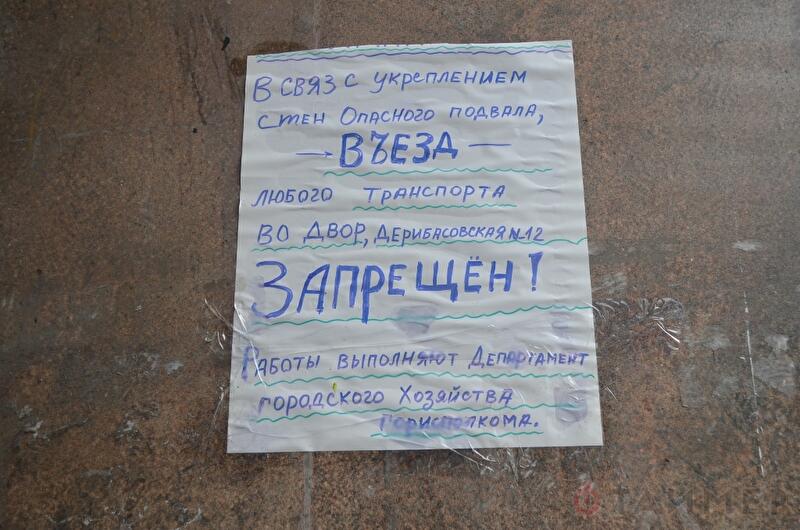 В СВЯЗ С УКРЕПЛЕНИЕМ
СТЕН ОПАСНОГО ПОДВАЛА,
→ ВЪЕЗД —
ЛЮБОГО ТРАНСПОРТА
ВО ДВОР, ДЕРИБАСОВСКАЯ №12
ЗАПРЕЩЁН!
РАБОТЫ ВЫПОЛНЯЮТ ДЕПАРТАМЕНТ
ГОРОДСКОГО ХОЗЯЙСТВА
ГОРИСПОЛКОМА.